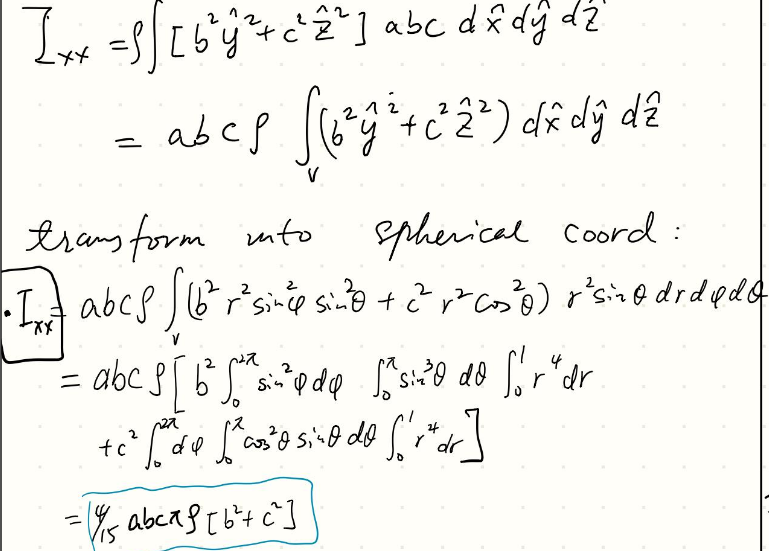 I_xx = ρ∫[b²ŷ² + c²ẑ²] abc dx̂ dŷ dẑ
= abcρ ∫_V (b²ŷ² + c²ẑ²) dx̂ dŷ dẑ
transform into spherical coord :
· I_xx = abcρ ∫_V (b² r² sin²φ sin²θ + c² r² cos²θ) r² sinθ dr dφ dθ
= abcρ [ b² ∫₀^2π sin²φ dφ ∫₀^π sin³θ dθ ∫₀¹ r⁴ dr
+ c² ∫₀^2π dφ ∫₀^π cos²θ sinθ dθ ∫₀¹ r⁴ dr ]
= 4/15 abcπρ [b² + c²]